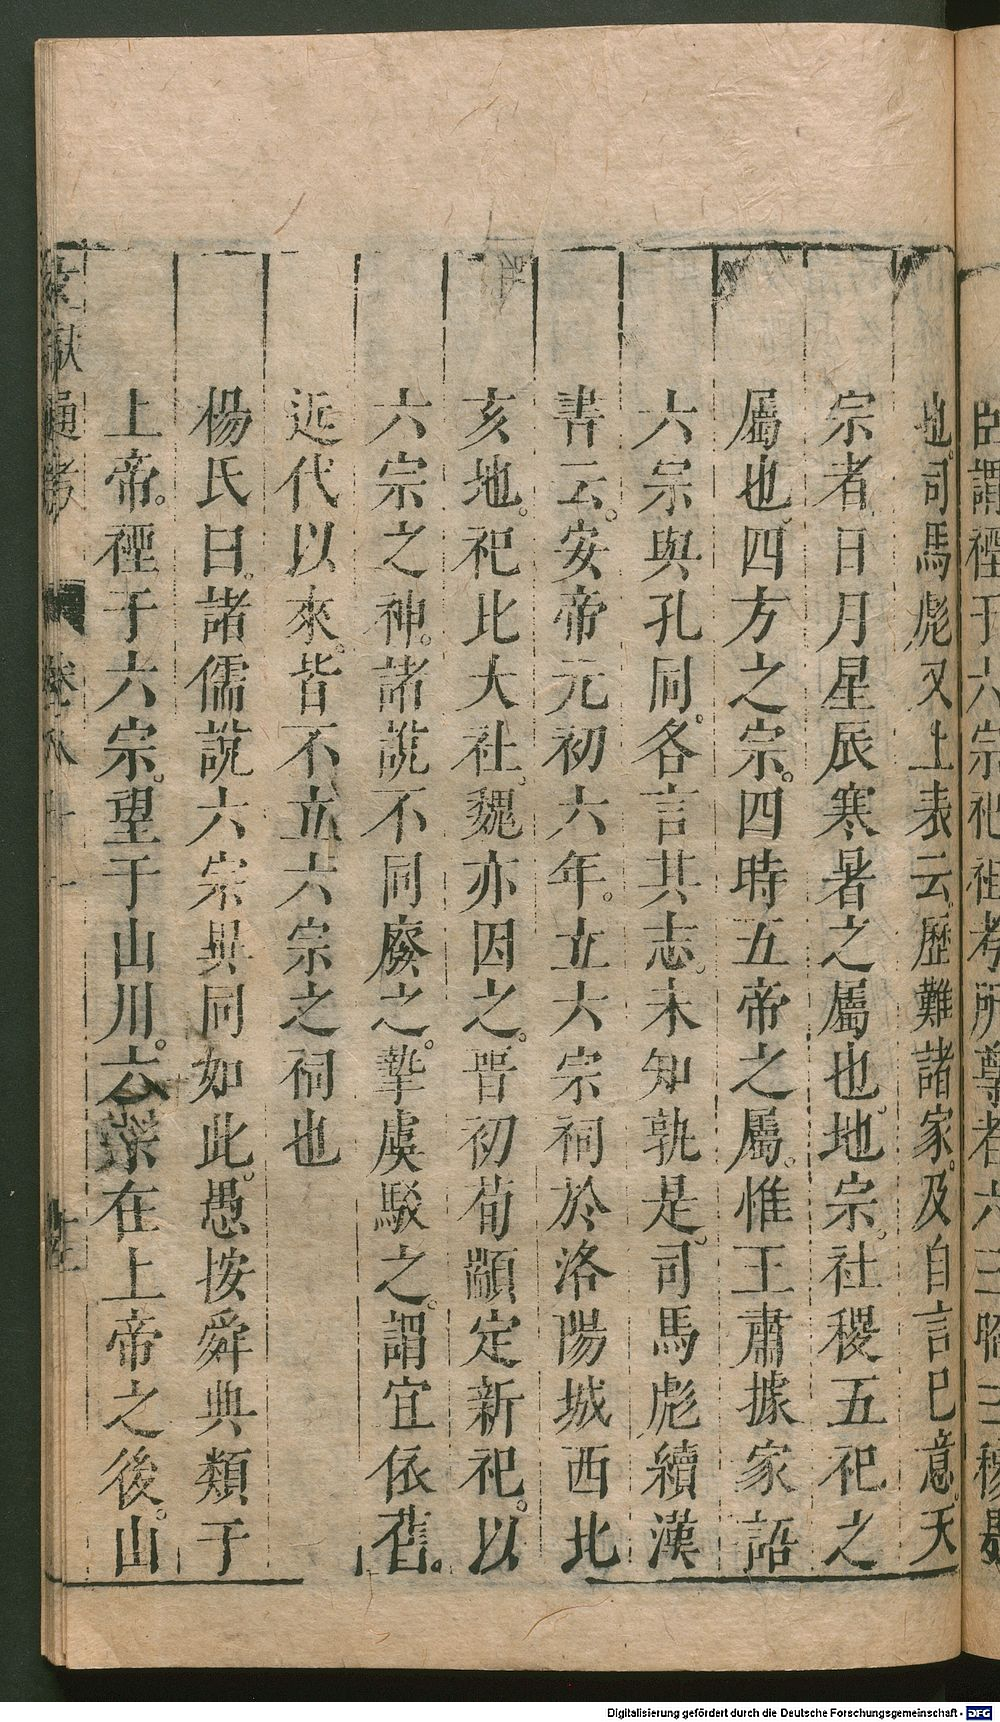 臣謂禋于六宗祀祖考所尊者六三昭三穆是
地司馬彪又上表云歷難諸家及自言已意天
宗者日月星辰寒暑之屬也地宗社稷五祀之
屬也四方之宗四時五帝之屬惟王肅據家語
六宗與孔同各言其志未知孰是司馬彪續漢
書云安帝元初六年立六宗祠於洛陽城西北
亥地祀比大社魏亦因之晉初荀顗定新祀以
六宗之神諸說不同廢之摯虞駁之謂宜依舊
近代以來皆不立六宗之祠也
楊氏曰諸儒說六宗異同如此愚按舜典類于
上帝禋于六宗望于山川六宗在上帝之後山
文獻通考 卷八十一
Digitalisierung gefördert durch die Deutsche Forschungsgemeinschaft - DFG